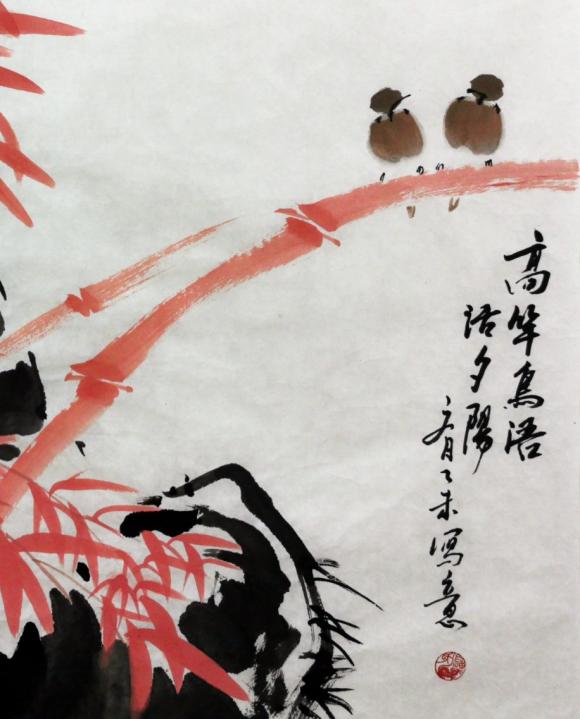 高竿鳥語
話夕陽
月乙未寫意